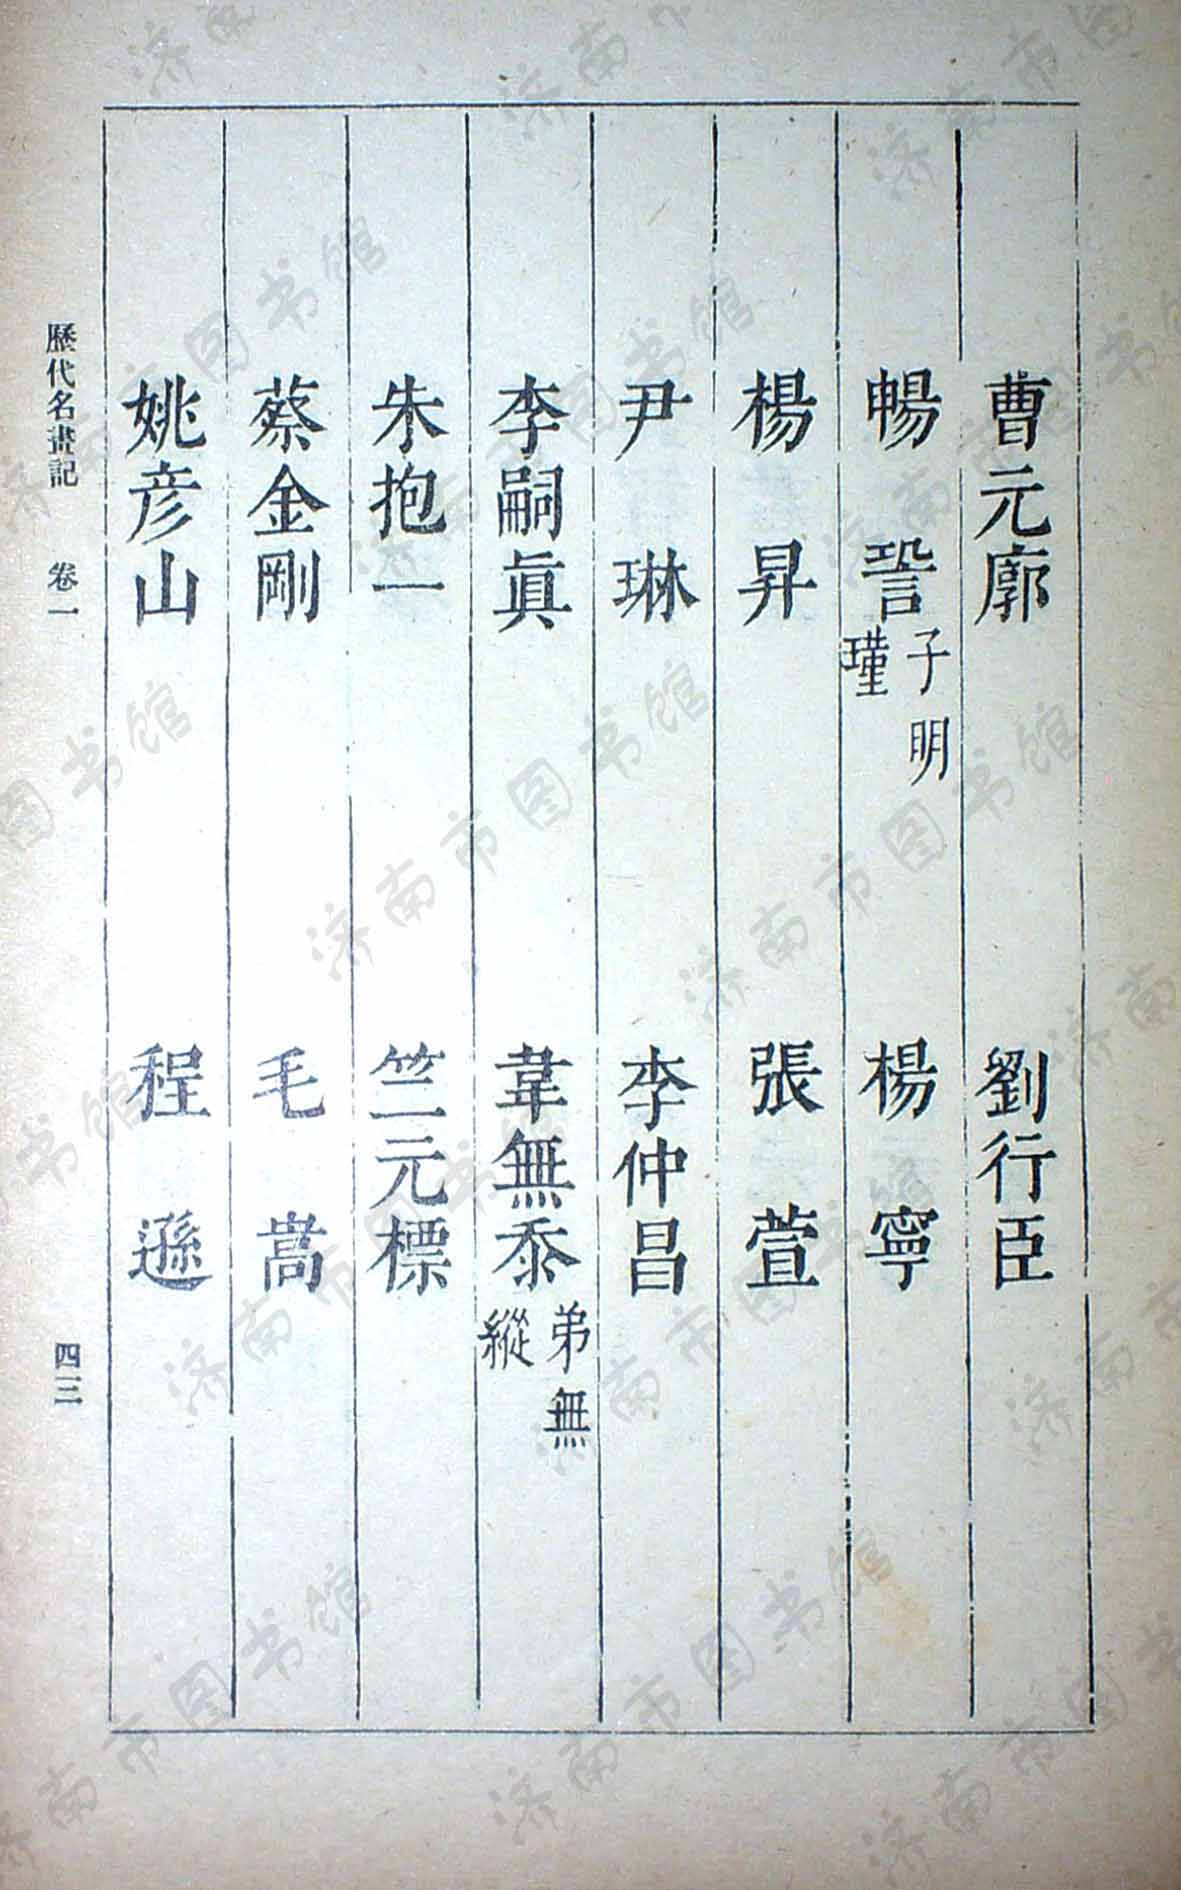 曹元廓　劉行臣
暢𧦬子明瑾　楊寧
楊昇　張萱
尹琳　李仲昌
李嗣眞　韋無忝弟無縱
朱抱一　竺元標
蔡金剛　毛嵩
姚彦山　程遜
歷代名畫記　卷一　四三
济南市图书馆